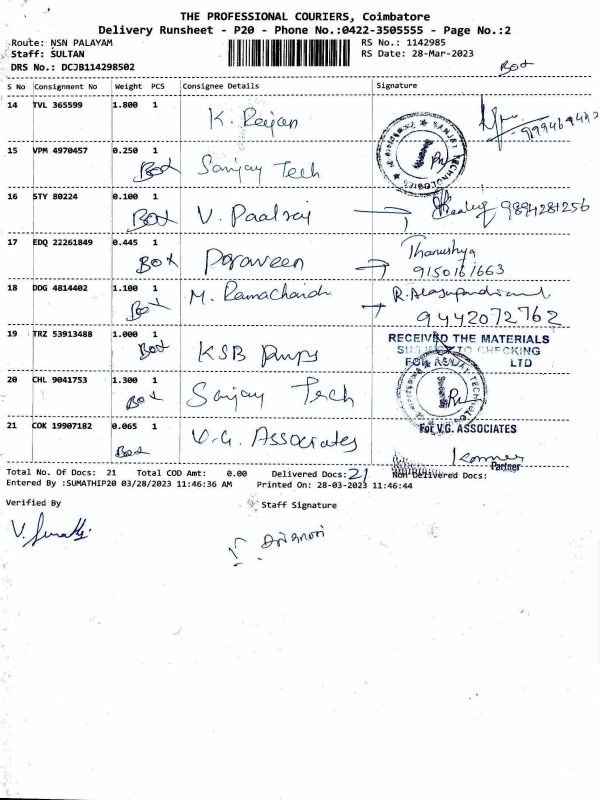 THE PROFESSIONAL COURIERS, Coimbatore
Delivery Runsheet - P20 - Phone No.:0422-3505555 - Page No.:2
Route: NSN PALAYAM RS No.: 1142985
Staff: SULTAN RS Date: 28-Mar-2023
DRS No.: DCJB114298502 Box
S No Consignment No Weight PCS Consignee Details Signature
14 TVL 365599 1.800 1 K. Rejan
15 VPM 4970457 0.250 1 Box Sanjay Tech SANJAY TECHNOLOGIES
16 STY 80224 0.100 1 Box V. Paalraj 9894281256
17 EDQ 22261849 0.445 1 Box Paraveen Thanushya
9150161663
18 DDG 4814402 1.100 1 Box M. Ramachandr
9442072762
19 TRZ 53913488 1.000 1 Box KSB Pumps RECEIVED THE MATERIALS
TO CHECKING
LTD
20 CHL 9041753 1.300 1 Box Sanjay Tech SANJAY TECHNOLOGIES
21 COK 19907182 0.065 1 Box V.G. Associates For V.G. ASSOCIATES
Partner
Total No. Of Docs: 21 Total COD Amt: 0.00 Delivered Docs: 21 Non Delivered Docs:
Entered By :SUMATHIP20 03/28/2023 11:46:36 AM Printed On: 28-03-2023 11:46:44
Verified By Staff Signature